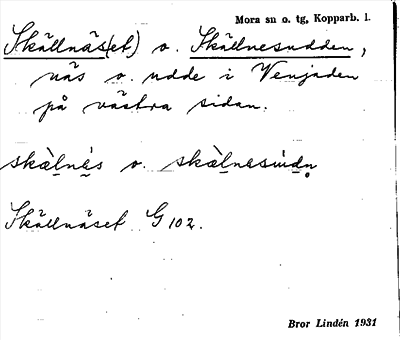 Mora sn o. tg, Kopparb. l.
Skällnäs(et) o. Skällnesudden,
näs o. udde i Venjaden
på västra sidan.
skàl̥nẹ́s o. skàl̥nẹsúdn̥
Skällnäset G 102.
Bror Lindén 1931